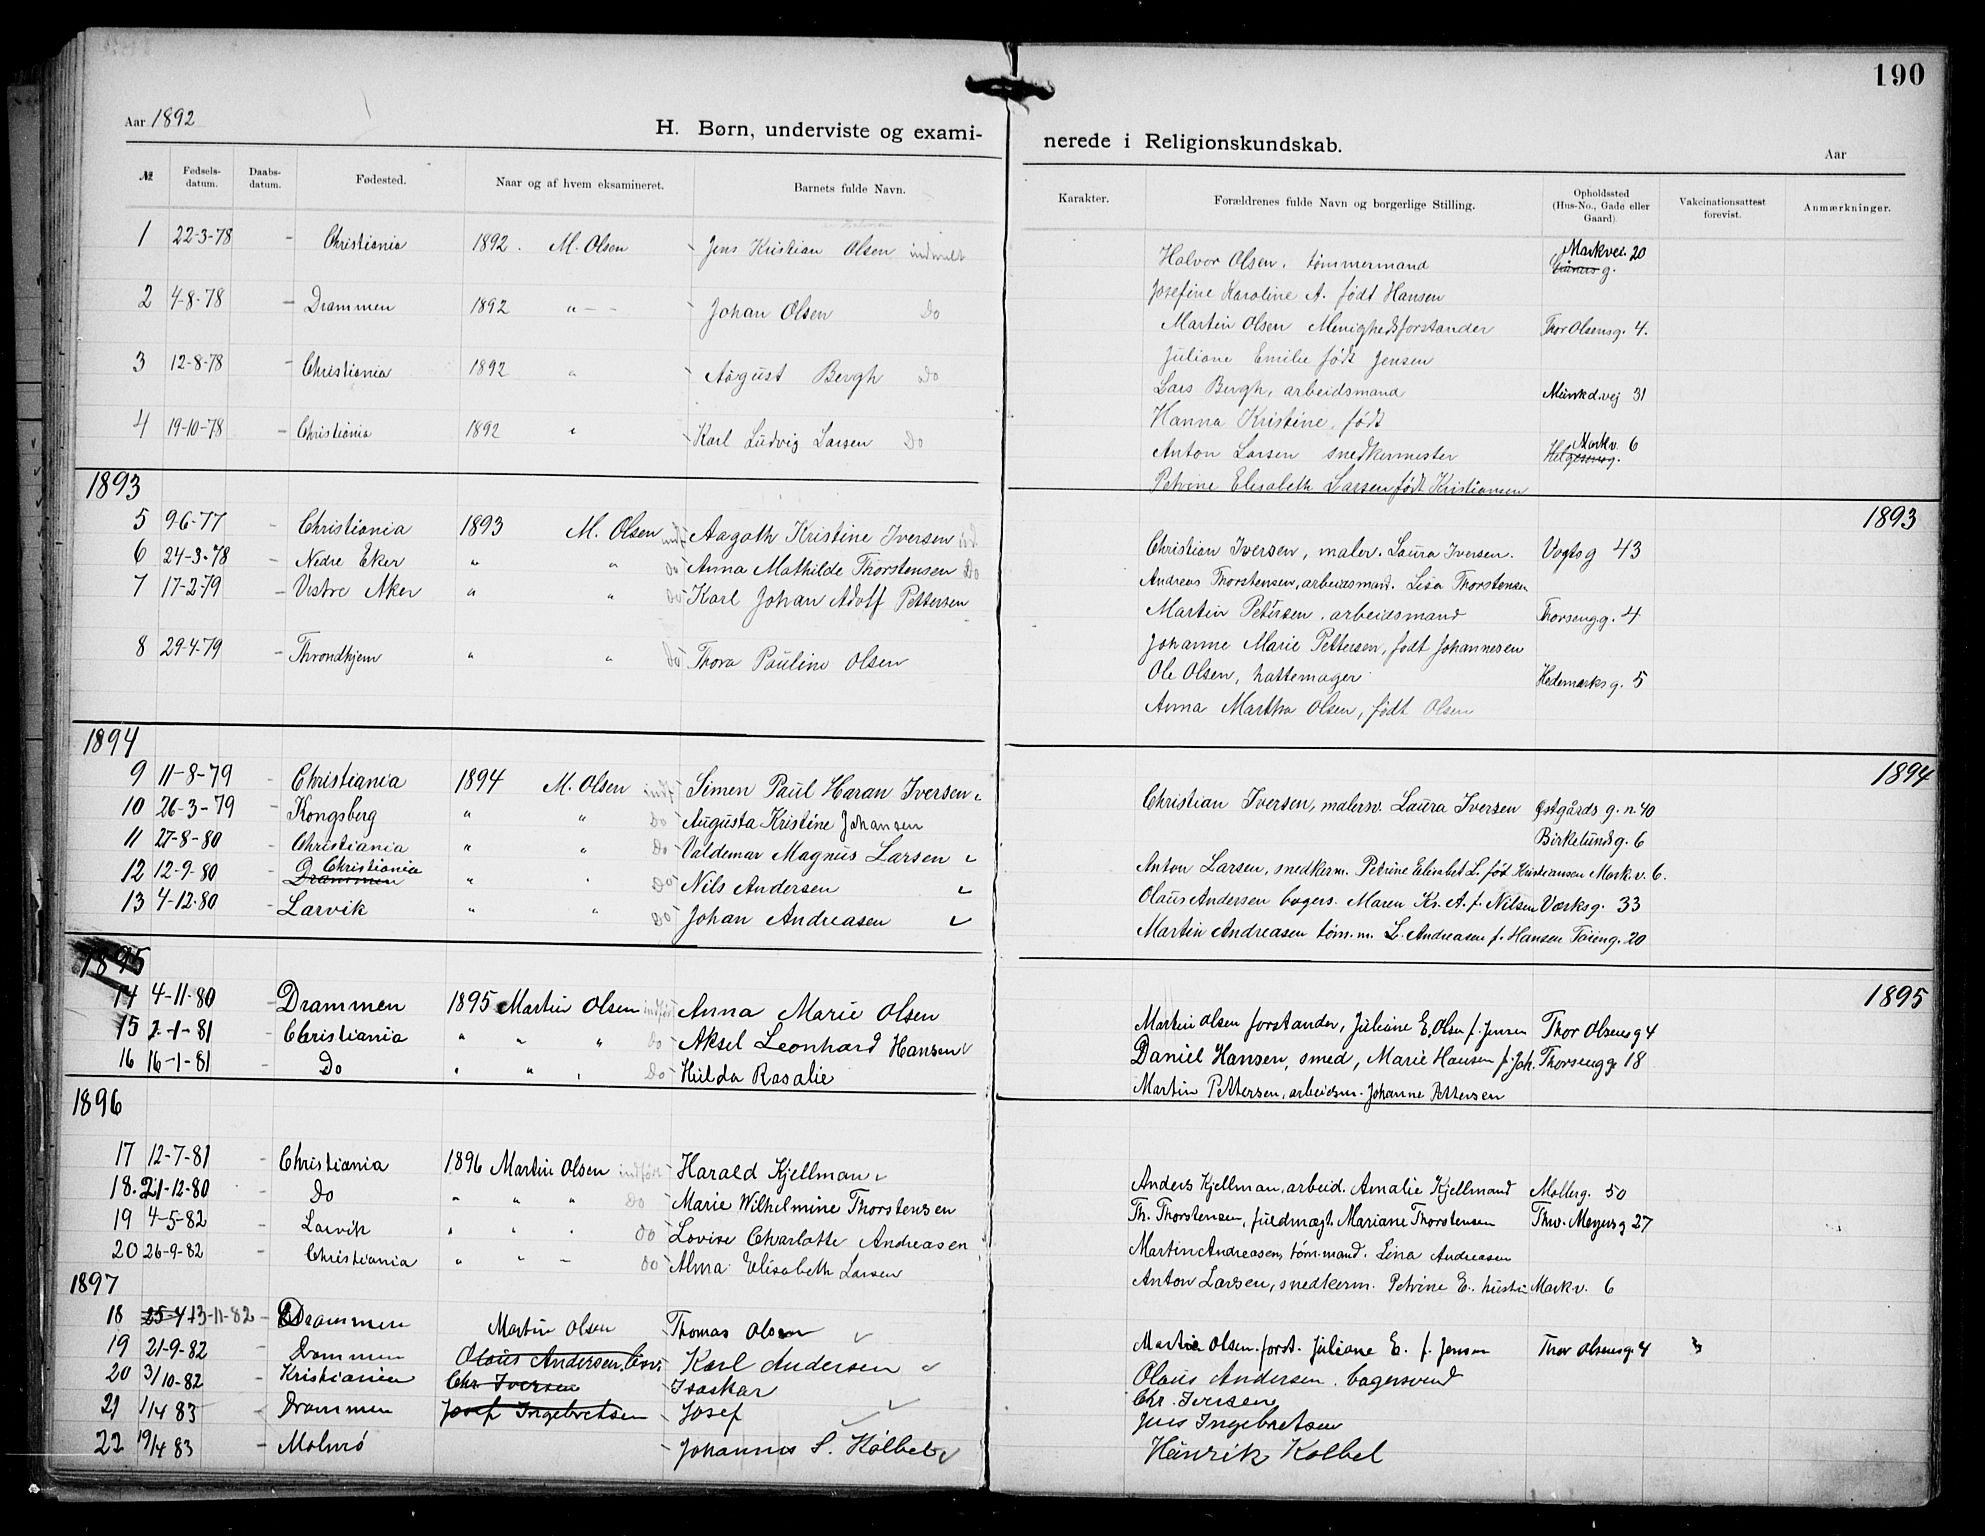 190
Aar 1892
H. Børn, underviste og exami-
nerede i Religionskundskab.
Aar
№ Fødsels-datum. Daabs-datum. Fødested. Naar og af hvem eksamineret. Barnets fulde Navn.
Karakter. Forældrenes fulde Navn og borgerlige Stilling. Opholdssted (Hus-No., Gade eller Gaard). Vakcinationsattest forevist. Anmærkninger.
1 22-3-78 - Christiania 1892. M. Olsen Jens Kristian Olsen indmeldt
2 4-8-78 - Drammen 1892 " - - Johan Olsen Do
3 12-8-78 - Christiania 1892 " August Bergh Do
4 19-10-78 - Christiania 1892 " Karl Ludvig Larsen Do
1893
5 9-6-77 - Christiania 1893 M. Olsen Aagoth Kristine Iversen
6 24-3-78 - Nedre Eker " " do Anna Mathilde Thorstensen Do
7 17-2-79 - Vestre Aker " " do Karl Johan Adolf Pettersen
8 29-4-79 - Throndhjem " " do Thora Pauline Olsen
1894
9 11-8-79 - Christiania 1894 M. Olsen indf Simen Paul Haran Iversen
10 26-3-79 - Kongsberg " " Do Augusta Kristine Johansen
11 27-8-80 - Christiania " " Do Valdemar Magnus Larsen
12 12-9-80 - Drammen Christiania " " Do Nils Andersen
13 4-12-80 - Larvik " " Do Johan Andreasen
1895
14 4-11-80 - Drammen 1895 Martin Olsen indført Anna Marie Olsen
15 2-1-81 - Christiania " " " do Aksel Leonhard Hansen
16 16-1-81 - Do " " " Do Hulda Rosalie
1896
17 12-7-81 - Christiania 1896 Martin Olsen indført Harald Kjellman
18. 21-12-80 - Do " " " Do Marie Wilhelmine Thorstensen
19 4-5-82 - Larvik " " " do Lovise Charlotte Andreasen
20 26-9-82 - Christiania " " - do Alma Elisabeth Larsen
1897
18 25-4 13-11-82 - Drammen Martin Olsen Thomas Olsen
19 21-9-82 - Drammen Olaus Andersen Karl Andersen
20 3/10-82 - Kristiania Chr. Iversen Isaskar
21 1/4 83 - Drammen Josef Ingebretsen Josef
22 19/4 83 - Malmö Johannes S. Kölbel
Halvor Olsen, tømmermand Markvei. 20 g.
Josefine Karoline A. født Hansen
Martin Olsen Menighedsforstander Thor Olsensg. 4.
Juliane Emilie født Jensen
Lars Bergh, arbeidsmand Munkd.vej 31
Hanna Kristine, født
Anton Larsen snedkermester Markv. 6 Helgesensg.
Petrine Elisabeth Larsen født Kristiansen
1893
Christian Iversen, maler. Laura Iversen. Vogtsg 43
Andreas Thorstensen, arbeidsmand. Lisa Thorstensen
Martin Petersen, arbeidsmand Thorsengg. 4
Johanne Marie Pettersen, født Johannesen
Ole Olsen, hattemager Hedemarksg. 5
Anna Martha Olsen, født Olsen
1894
Christian Iversen, malersv. Laura Iversen Østgårds g. n. 40
Birkelundsg. 6
Anton Larsen, snedkerm. Petrine Elisabet L. føt Kristiansen Mark.v. 6.
Olaus Andersen bagers. Maren Kr. A. f. Nilsen Værksg. 33
Martin Andreasen tøm.m. L. Andreasen f. Hansen Tøieng. 20
1895
Martin Olsen forstander, Juliane E. Olsen f. Jensen Thor Olsensg 4
Daniel Hansen, smed, Marie Hansen f. Joh. Thorsengg. 18
Martin Pettersen, arbeidsm. Johanne Pettersen
Anders Kjellman, arbeid. Amalie Kjellmand Møllerg. 50
Th. Thorstensen, fuldmægt. Mariane Thorstensen Thv. Meyersg 27
Martin Andreasen, tøm.mand. Lina Andreasen
Anton Larsen, snedkerm. Petrine E. hustru Markv. 6
Martin Olsen. forst. Juliane E. f. Jensen Thor Olsensg. 4
Olaus Andersen. bagersvend
Chr. Iversen
Jens Ingebretsen
Hanrik Kolbel